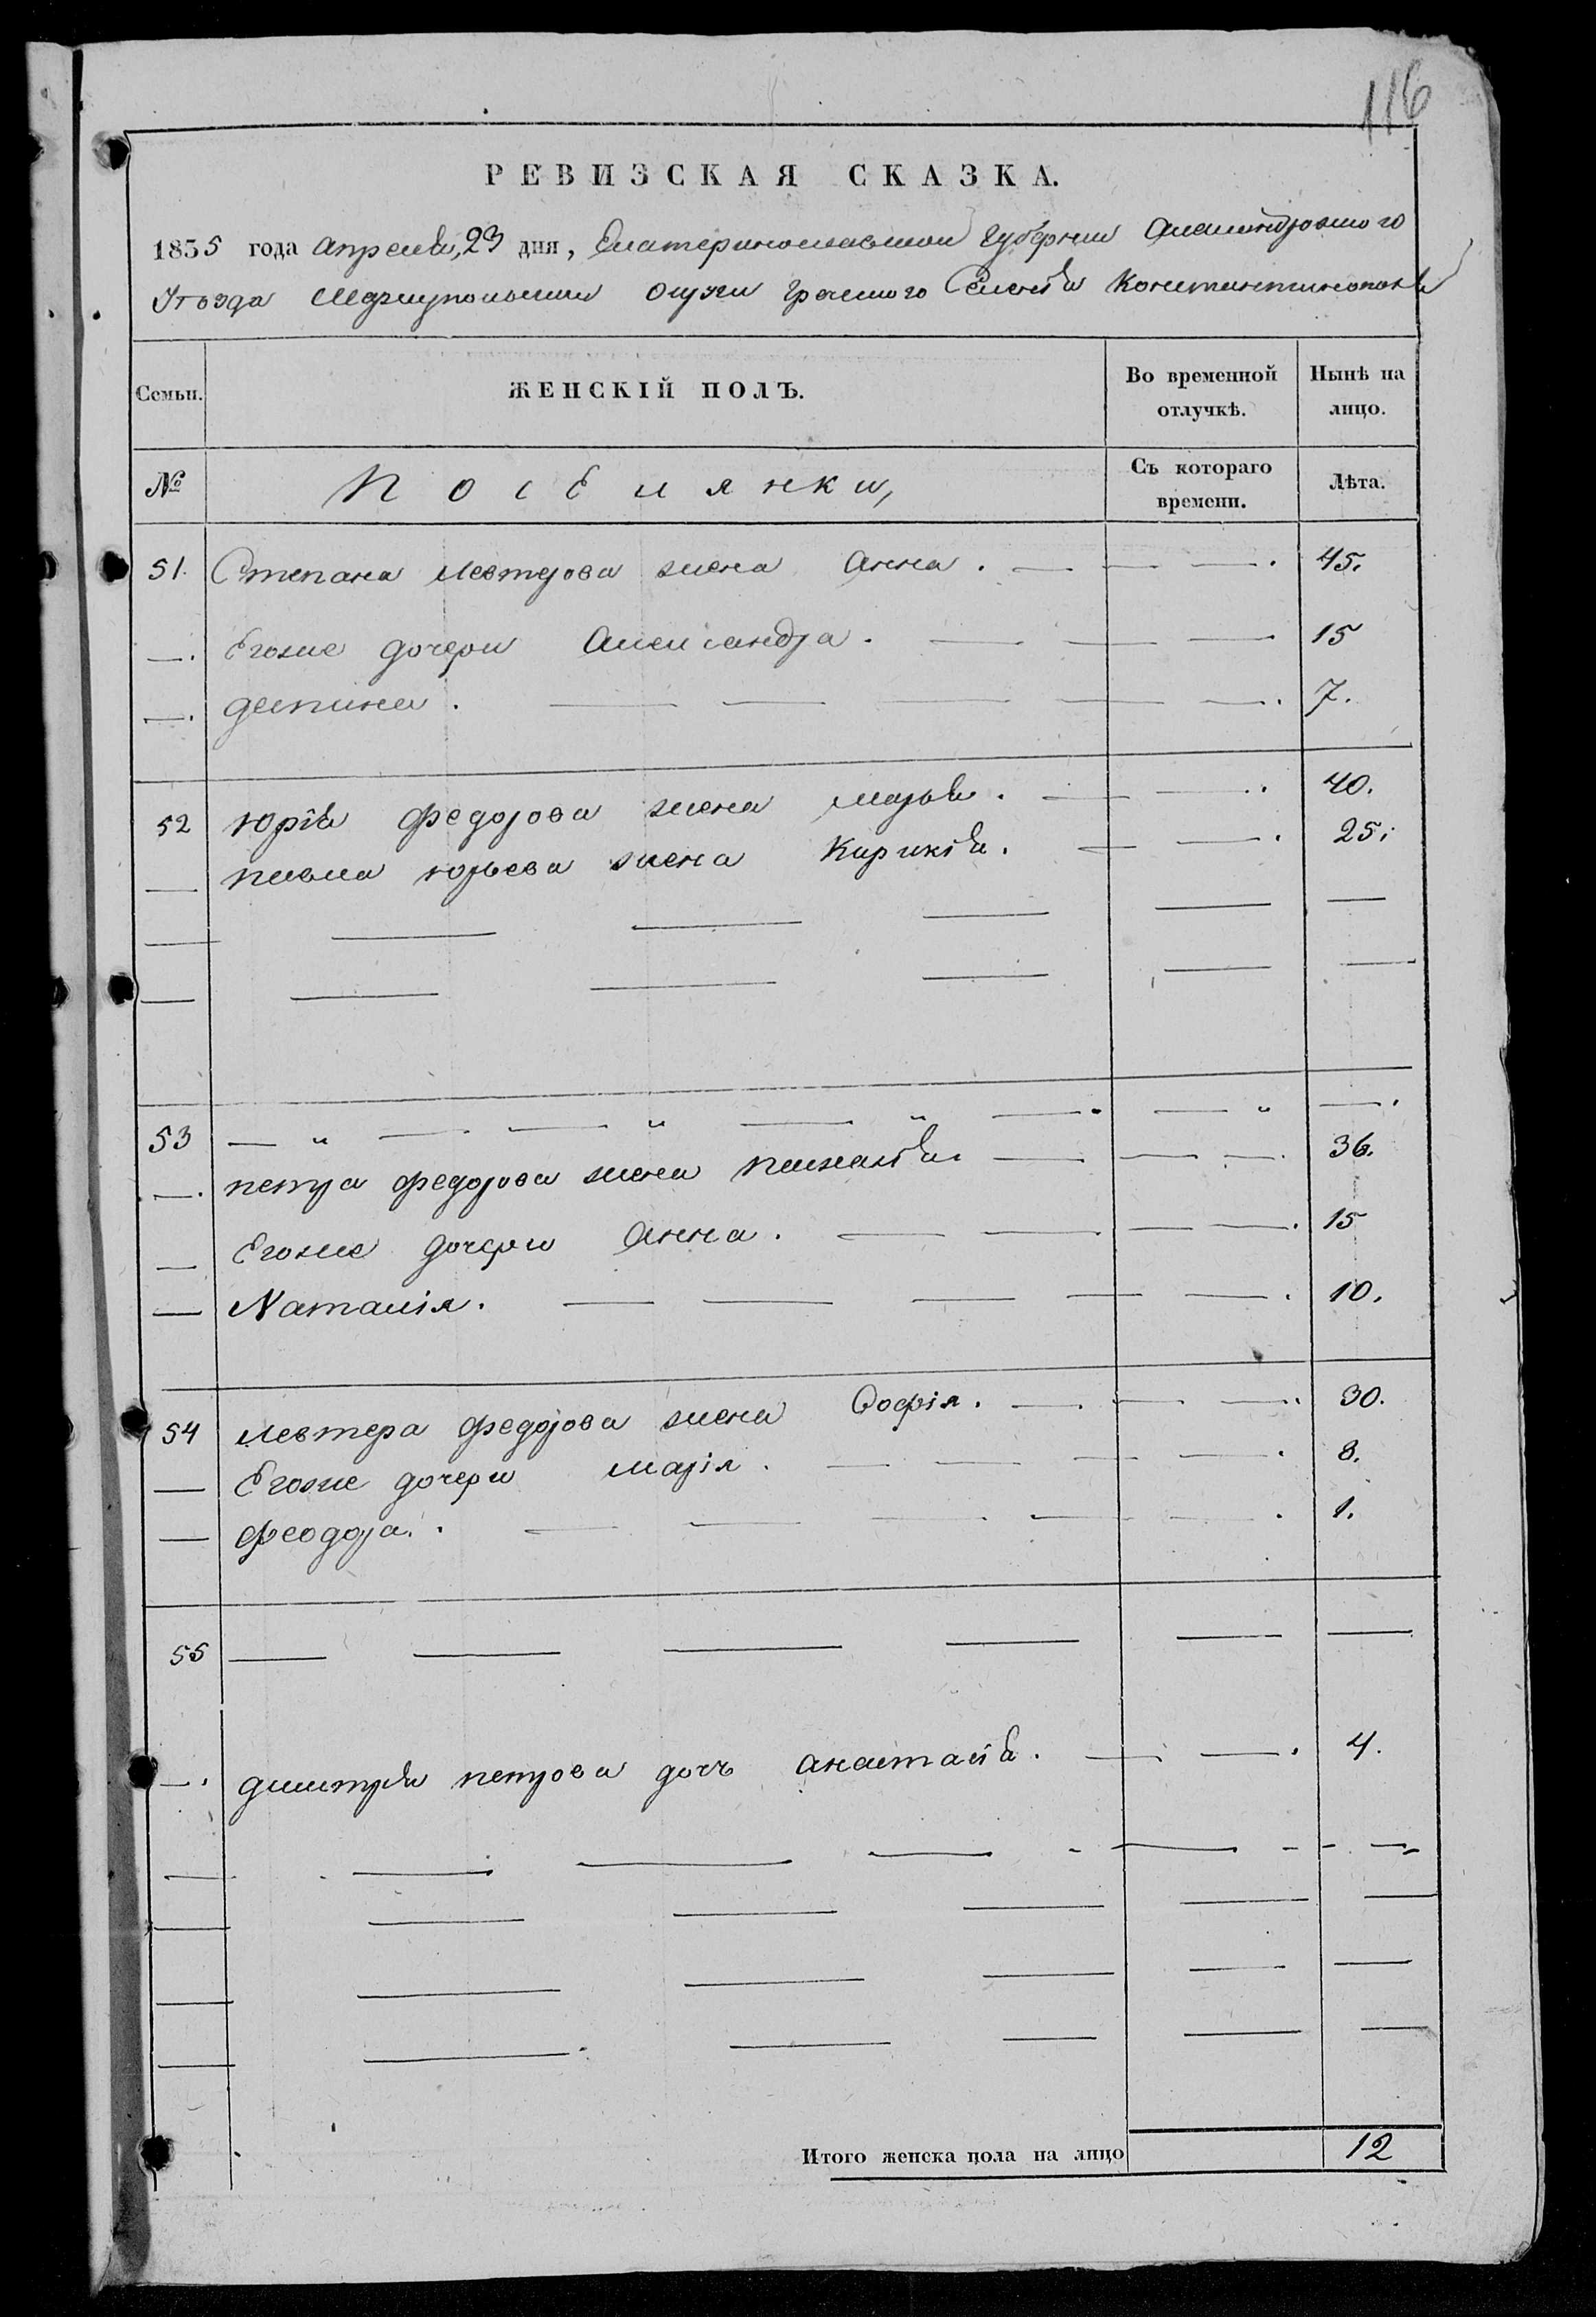 116
РЕВИЗСКАЯ СКАЗКА.
1835 года Апреля, 23 дня, Екатеринославской Губернии Александровского
Уезда Мариупольския округи греческого Селения Константинополя
Семьи. ЖЕНСКІЙ ПОЛЪ. Во временной отлучкѣ. Нынѣ на лицо.
№ Поселянки, Съ котораго времени. Лѣта.
51. Степана Левтерова жена Анна. — — —. 45.
—. Егоже дочери Александра. — — — 15
—. деспина. — — — — —. 7.
52 Юрія Федорова жена марья. — —. 40.
— павла юрьева жена Кирикія. — —. 25.
— — — — — —
— — — — — —
53 — „ — — „ — „ —. — „ —.
—. петра федорова жена — — —. 36.
— Егоже дочери Анна. — — — —. 15
— Наталія. — — — — —. 10.
54 Левтера федорова жена Софія. —. — —. 30.
— Егоже дочери марія. — — — —. 8.
— феодора. — — — — —. 1.
55 — — — — — —
—. дмитрія петрова дочь анастасія. — —. 4.
— — — — — —
— — — — — —
— — — — — —
— — — — — —
Итого женска пола на лицо 12